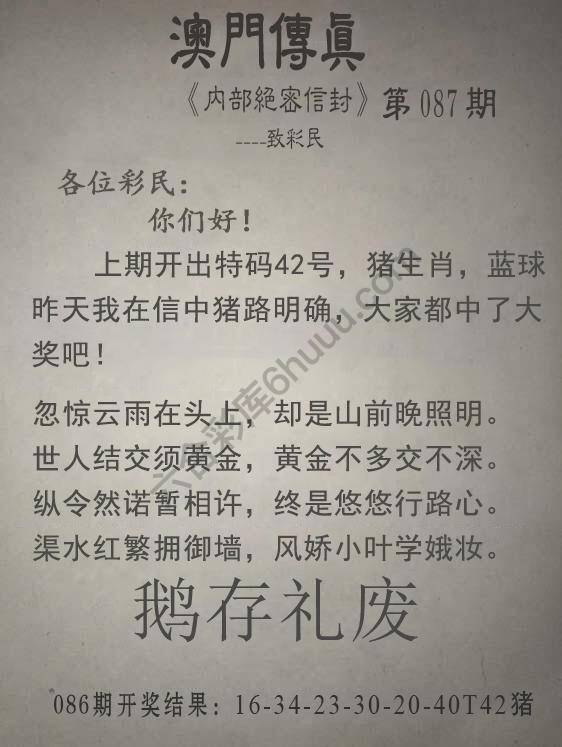 澳門傳眞
《内部絕密信封》第087期
----致彩民
各位彩民：
你们好！
上期开出特码42号，猪生肖，蓝球
昨天我在信中猪路明确，大家都中了大
奖吧！
忽惊云雨在头上，却是山前晚照明。
世人结交须黄金，黄金不多交不深。
纵令然诺暂相许，终是悠悠行路心。
渠水红繁拥御墙，风娇小叶学娥妆。
鹅存礼废
086期开奖结果：16-34-23-30-20-40T42猪
六合彩库6huuu.com